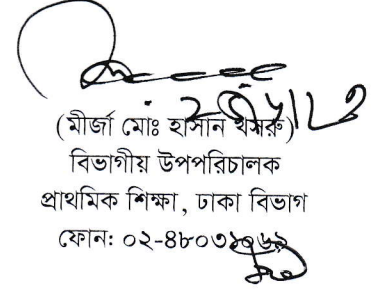 (মীর্জা মোঃ হাসান খসরু)
বিভাগীয় উপপরিচালক
প্রাথমিক শিক্ষা, ঢাকা বিভাগ
ফোন: ০২-৪৮০৩